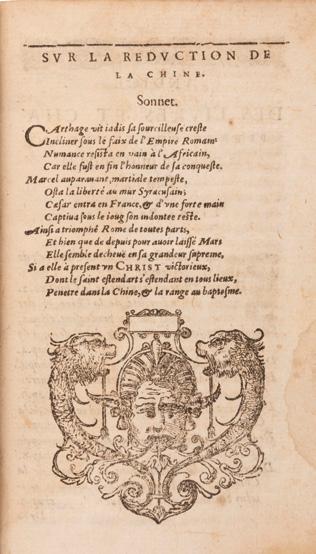 SVR LA REDVCTION DE
LA CHINE.
Sonnet.
CArthage vit iadis sa sourcilleuse creste
Incliner sous le faix de l'Empire Romain:
Numance resista en vain à l'Africain,
Car elle fust en fin l'honneur de sa conqueste.
Marcel auparauant, martiale tempeste,
Osta la liberté au mur Syracusain;
Cæsar entra en France, & d'vne forte main
Captiua sous le ioug son indontee teste.
Ainsi a triomphé Rome de toutes parts,
Et bien que de depuis pour auoir laissé Mars
Elle semble decheue en sa grandeur supreme,
Si a elle à present vn CHRIST victorieux,
Dont le saint estendart s'estendant en tous lieux,
Penetre dans la Chine, & la range au baptesme.